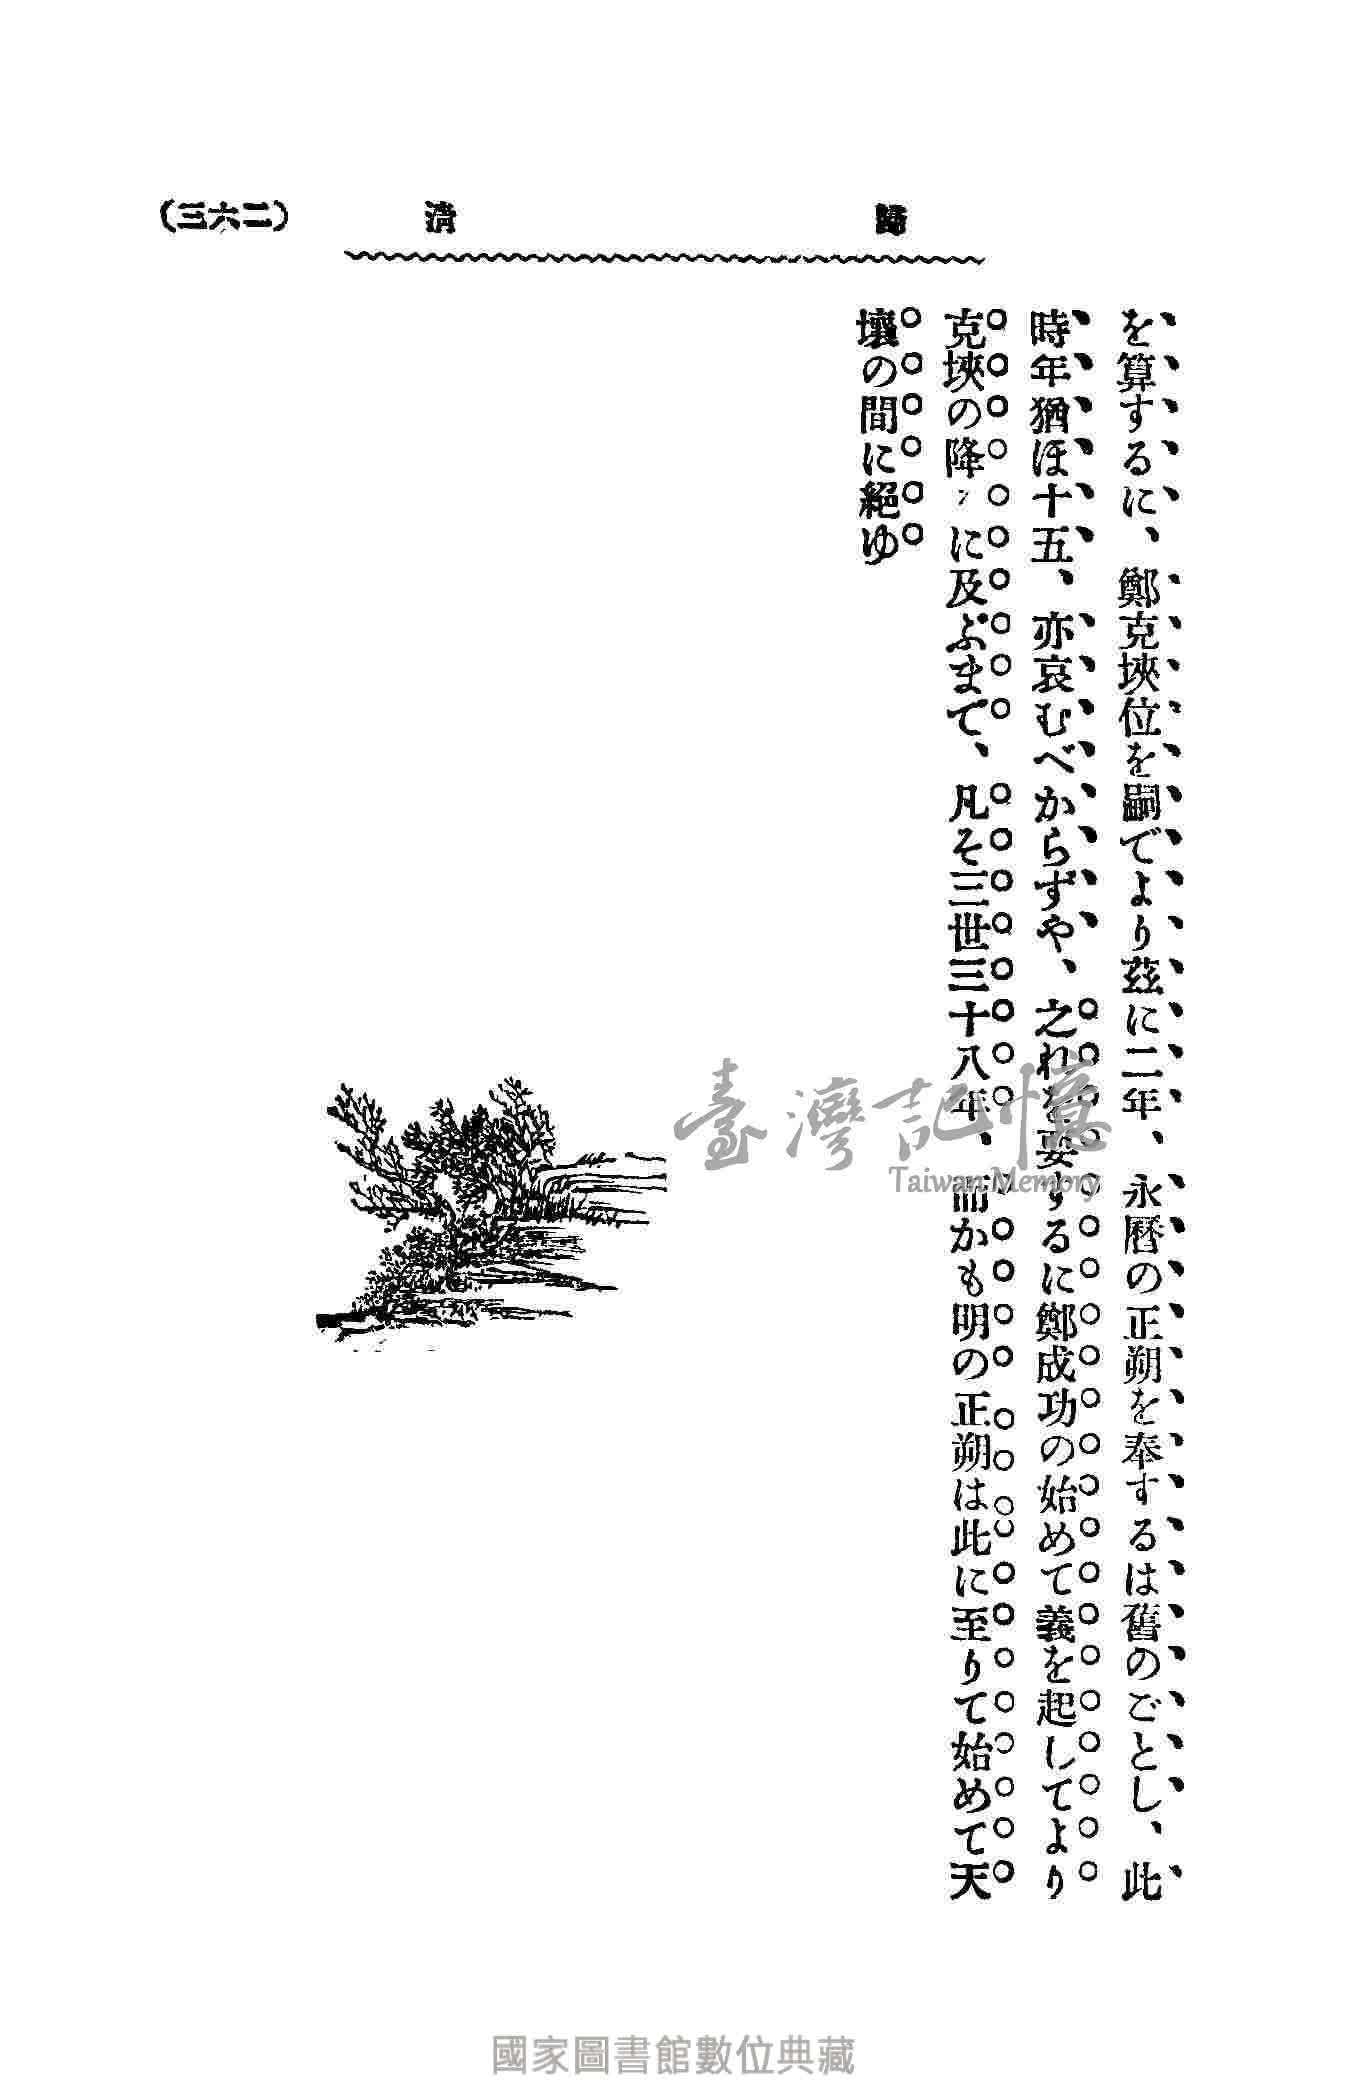 歸　清　（二六三）
を算するに、鄭克塽位を嗣でより茲に二年、永曆の正朔を奉するは舊のごとし、此
時年猶ほ十五、亦哀むべからずや、之れを要するに鄭成功の始めて義を起してより
克塽の降に及ぶまて、凡そ三世三十八年、而かも明の正朔は此に至りて始めて天
壤の間に絕ゆ
臺灣記憶
Taiwan Memory
國家圖書館數位典藏